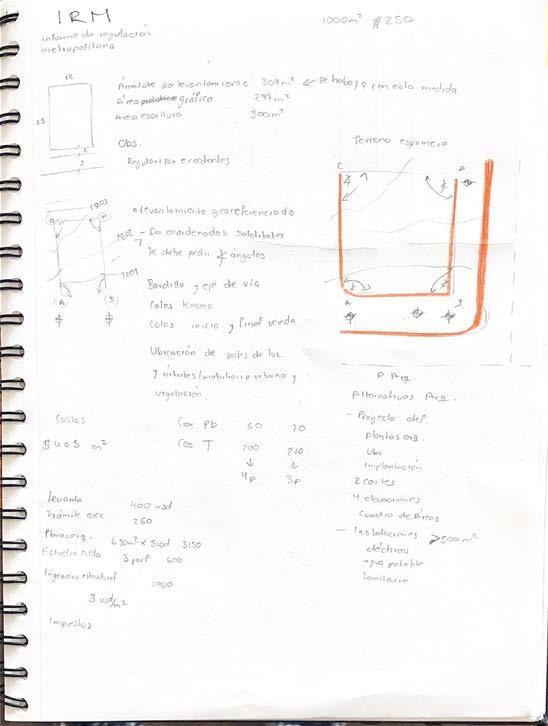 IRM
1000m² $250
informe de regulación
metropolitana
12
25
Área lote por levantamiento 304m² ← Se trabaja con esta medida
Área gráfica 297m²
Area escritura 300m²
Obs.
Regularizar excedentes
Terreno esquinero
C
D
levantamiento georeferenciado
- Da coordenadas satelitales
Se debe pedir ángulos
2203
2202
2201
(A) (B)
A
B
Bordillo y eje de vía
Cotas terreno
Cotas inicio y final vereda
Ubicación de postes de luz
y árboles/mobiliario urbano y
vegetación
P. Arq.
Alternativas Arq.
- Proyecto def.
Plantas arq.
Ubi
Implantación
2 cortes
4 elevaciones
Cuadro de Áreas
- Instalaciones >500m²
eléctricas
agua potable
sanitaria
Costos
Cos Pb 50 70
$ m²
Cos T 200 210
↓ ↓
4p 3p
Levanta 400 usd
Trámite exc 250
Planos arq. 630m² x 5usd 3150
Estudio suelo 3 perf 600
Ingeniero estructural 1900
3 usd/m²
Impuestos